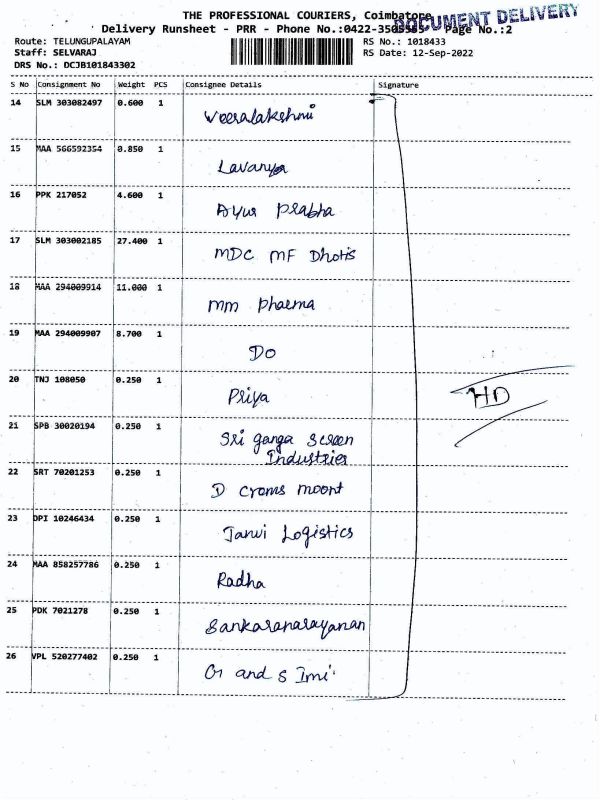 THE PROFESSIONAL COURIERS, Coimbatore
DOCUMENT DELIVERY
Delivery Runsheet - PRR - Phone No.:0422-3505555 Page No.:2
Route: TELUNGUPALAYAM
RS No.: 1018433
Staff: SELVARAJ
RS Date: 12-Sep-2022
DRS No.: DCJB101843302
S No Consignment No Weight PCS Consignee Details Signature
14 SLM 303082497 0.600 1 Veeralakshmi
15 MAA 566592354 0.850 1 Lavanya
16 PPK 217052 4.600 1 Ayur Prabha
17 SLM 303002185 27.400 1 MDC MF Dhotis
18 MAA 294009914 11.000 1 mm pharma
19 MAA 294009907 8.700 1 Do
20 TNJ 108050 0.250 1 Priya
HD
21 SPB 30020194 0.250 1 Sri ganga screen
Industries
22 SRT 70201253 0.250 1 D croms
23 DPI 10246434 0.250 1 Janvi Logistics
24 MAA 858257786 0.250 1 Radha
25 PDK 7021278 0.250 1 Sankaranarayanan
26 VPL 520277402 0.250 1 G and S